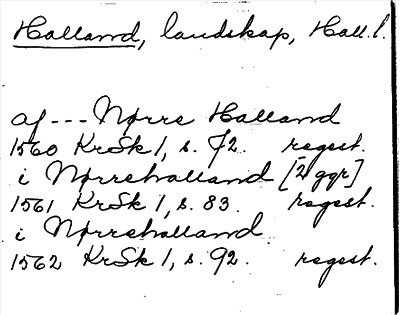 Halland, landskap, Hall. l.
af --- Nørre Halland
1560 KrSk 1, s. 72. regest.
i Nørrehalland [2 ggr]
1561 KrSk 1, s. 83. regest.
i Nørrehalland
1562 KrSk 1, s. 92. regest.